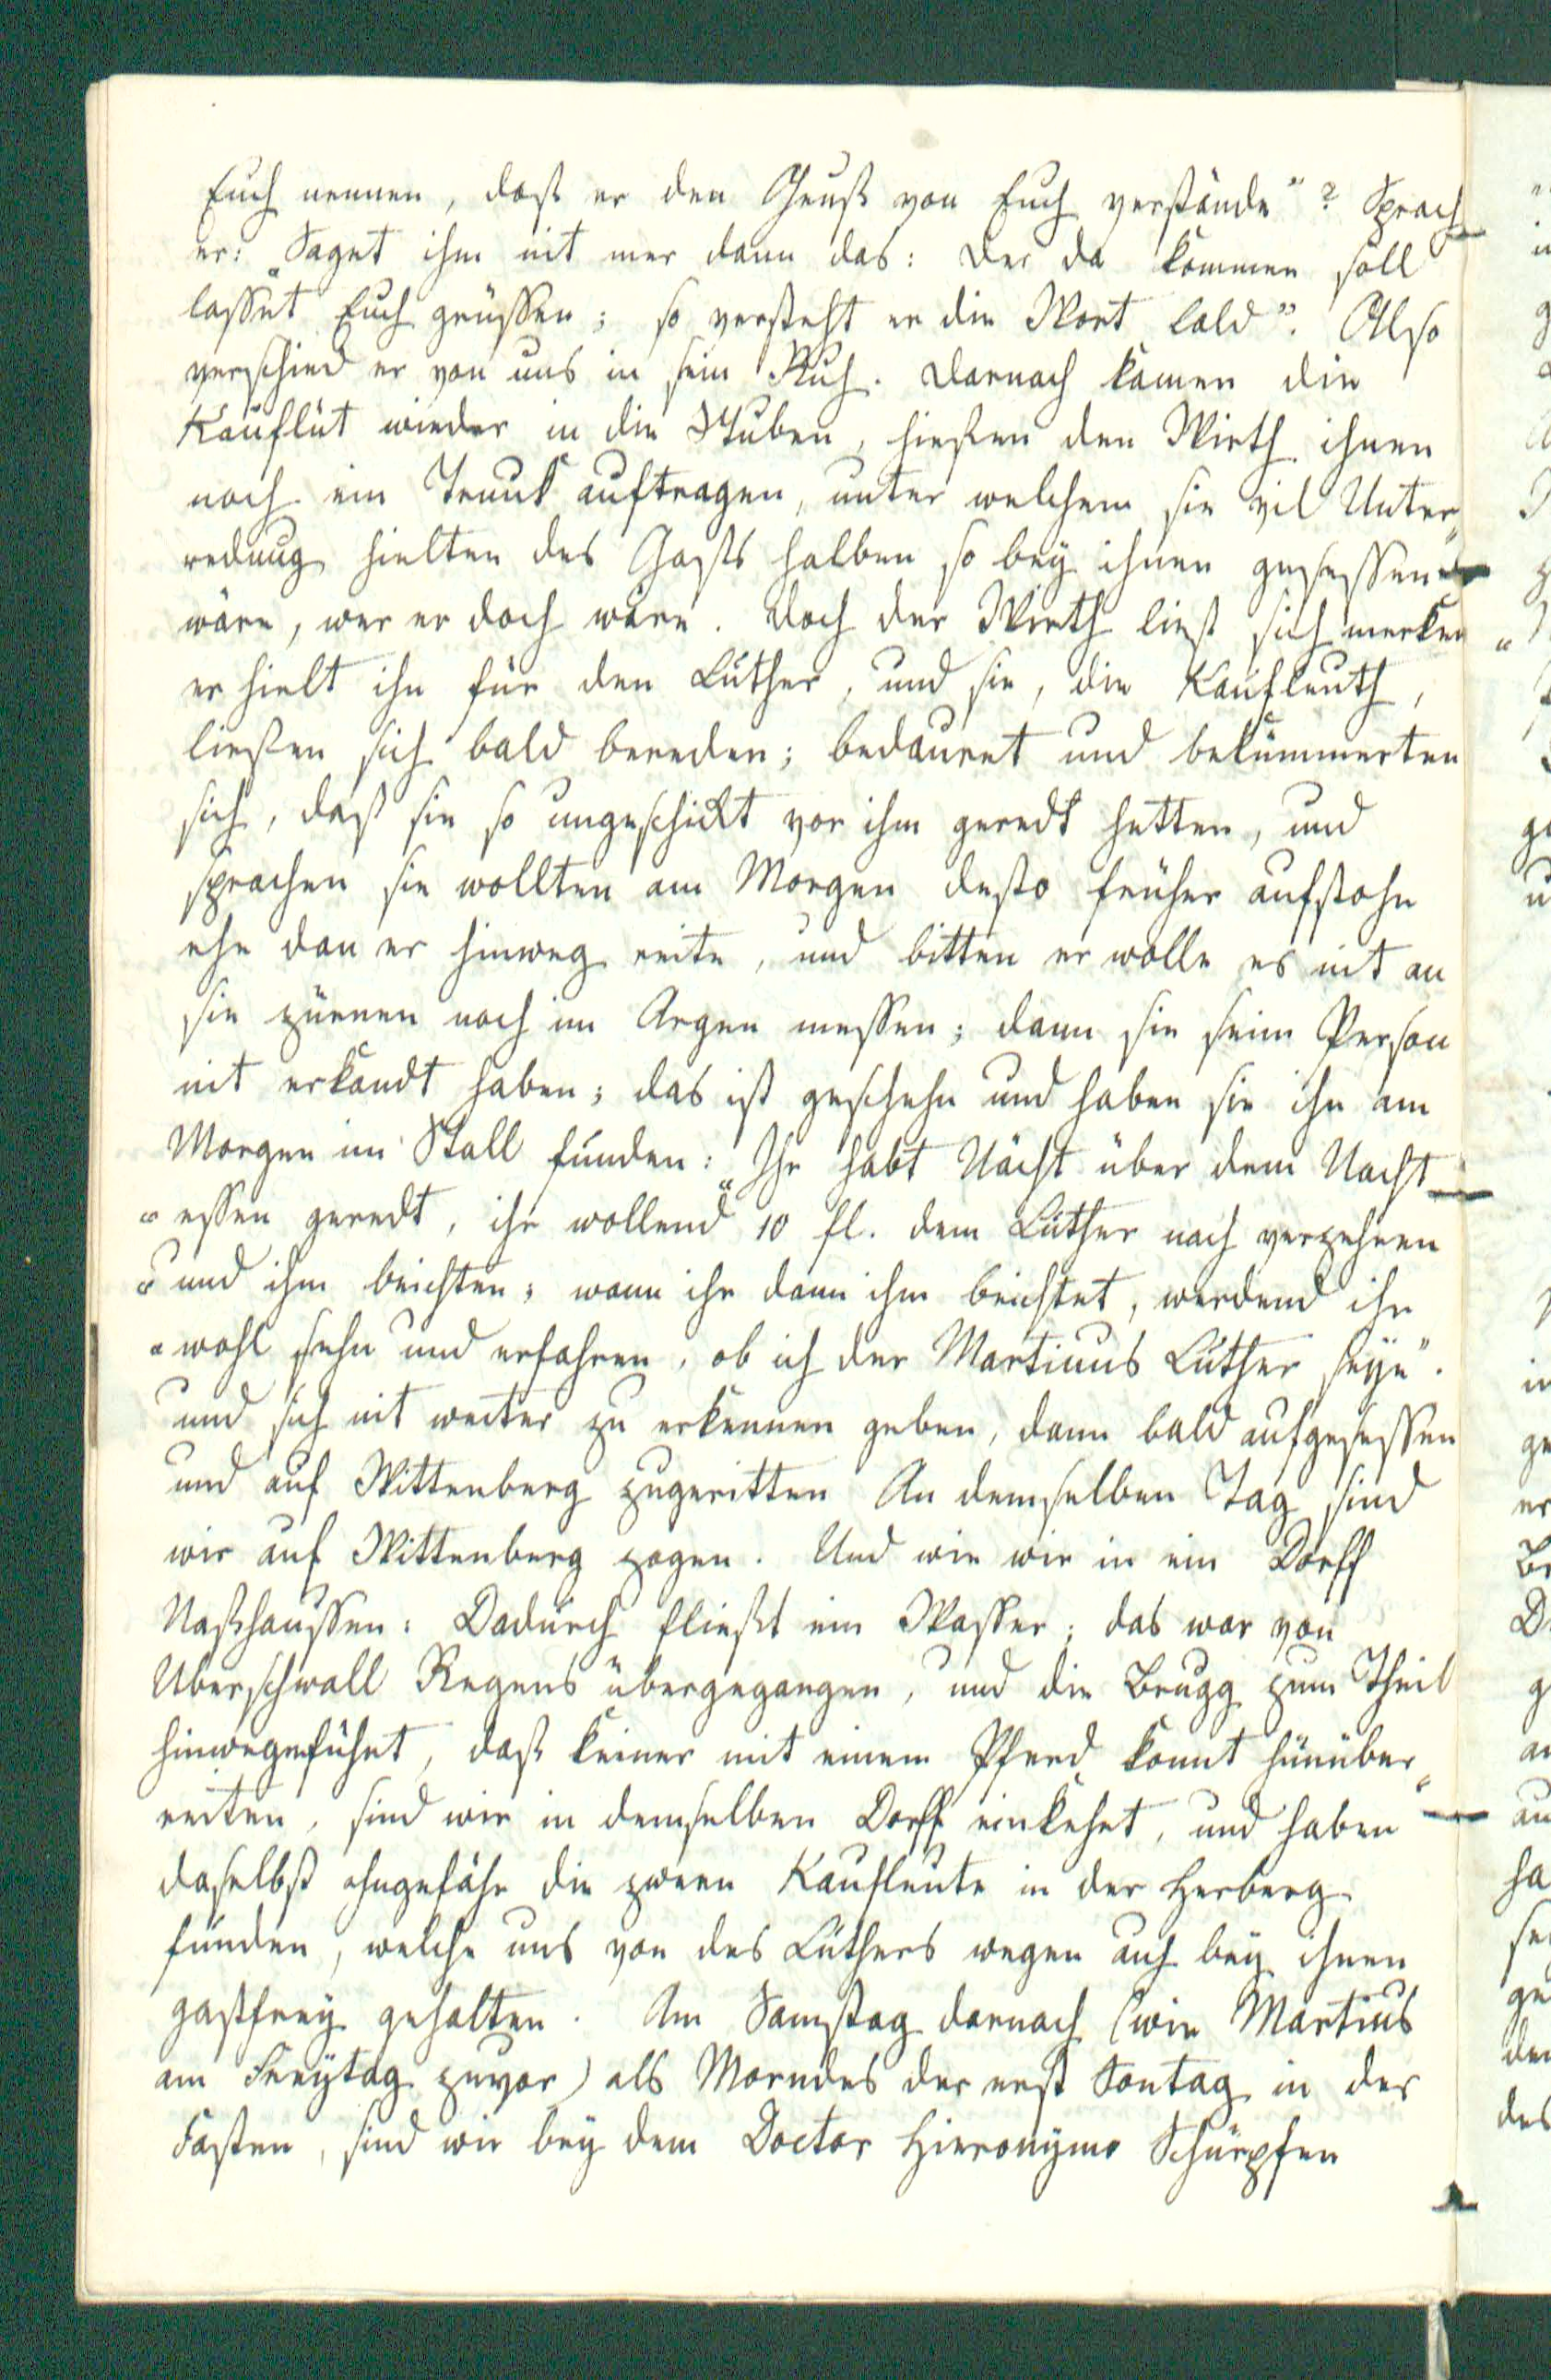 Euch nennen, daß er den Gruß von Euch verstände"? Sprach
er: "Saget ihm nit mer dann das: Der da kommen soll
lasset Euch grüssen; so versteht er die Wort bald". Also
verschied er von uns in sein Ruh. Darnach kamen die
Kauflüt wieder in die Stuben, hießen den Wirth ihnen
noch ein Trunk auftragen, unter welchem sie vil Unter„
redung hielten des Gasts halben so bey ihnen gesessen
wäre, wer er doch wäre. Doch der Wirth ließ sich merken
er hielt ihn für den Luther, und sie, die Kaufleuth,
ließen sich bald bereden; bedauret und bekümmerten
sich, daß sie so ungeschikt vor ihm geredt hetten, und
sprachen sie wollten am Morgen desto früher aufstohn
ehe dan er hinweg reite, und bitten er wolle es nit an
sie zürnen noch im Argen messen; dann sie seine Person
nit erkandt haben; das ist geschehn und haben sie ihn am
Morgen im Stall funden: "Ihr habt Nächt über dem Nacht
"essen geredt, ihr wollend 10 fl. dem Luther nach verzehren
"und ihm beichten; wann ihr dann ihm beichtet, werdend ihr
"wohl sehn und erfahren, ob ich der Martinus Luther seye".
und sich nit weiter zu erkennen geben, dann bald aufgesessen
und auf Wittenberg zugeritten An demselben Tag sind
wir auf Wittenberg zogen. Und wie wir in ein Dorff
Naßhaussen: Dadurch fließt ein Wasser; das war von
Uberschwall Regens übergegangen, und die Brugg zum Theil
hinweggeführt, daß keiner mit einem Pferd konnt hinüber„
reiten, sind wir in demselben Dorff einkehrt, und haben
daselbst ohngefähr die zween Kaufleute in der Herberg
funden, welche uns von des Luthers wegen auch bey ihnen
gastfrey gehalten. Am Samstag darnach (wie Martius
am Freytag zuvor) als Morndes der erst Sontag in der
Fasten, sind wir bey dem Doctor Hieronymo Schürpfen